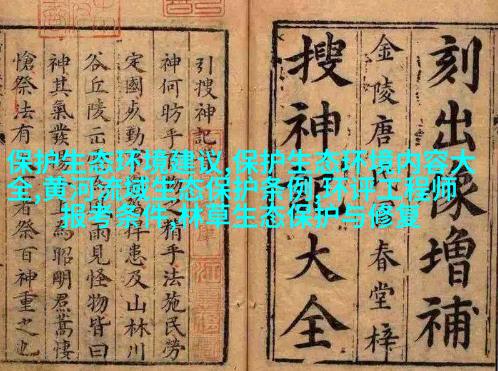 保护生态环境建议,保护生态环境内容大
全,黄河流域生态保护条例,环评工程师
报考条件,林草生态保护与修复
刻出像增補
搜神記大全
金陵唐氏春堂梓
引搜神記
神何昉乎精乎法施民勞
定國捍患及山林川
谷丘陵雨見怪物皆曰
神其氣發揚為昭明焄蒿悽
愴祭法有者祭百神重之也